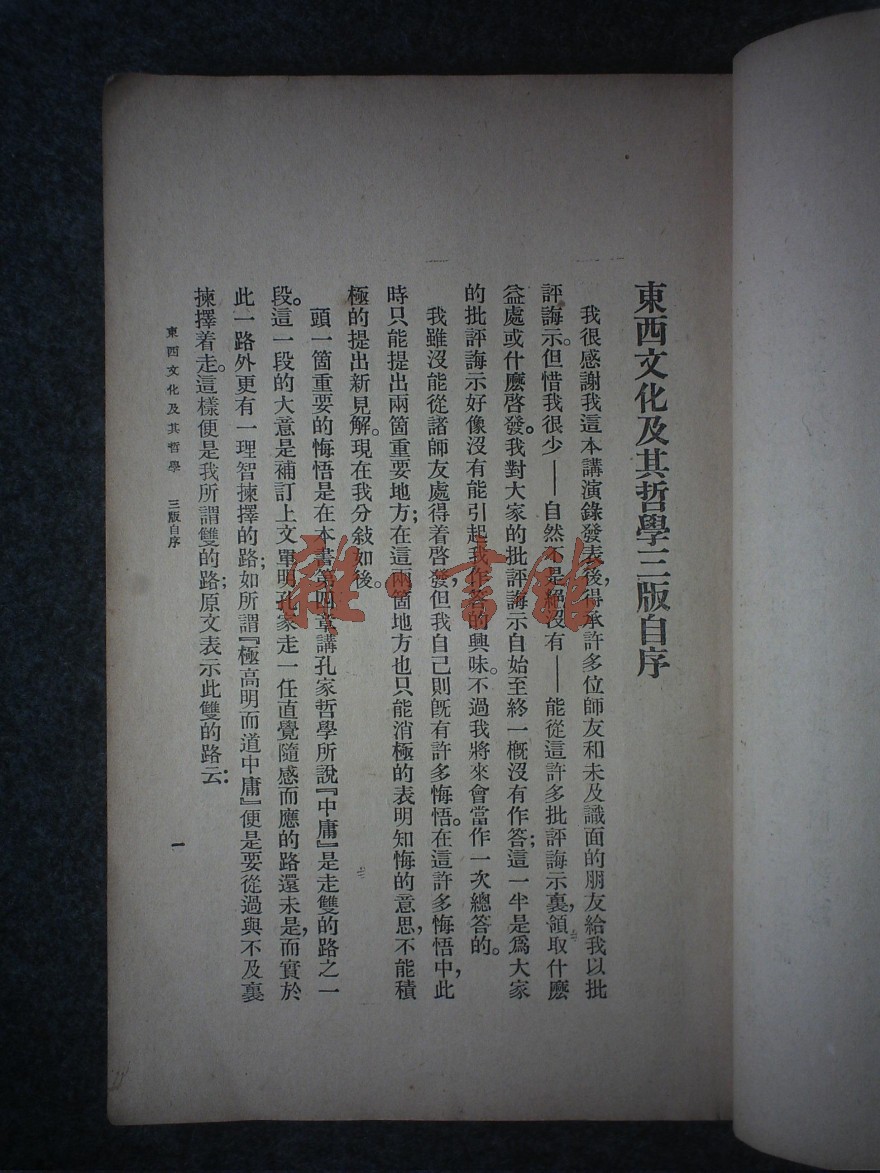 東西文化及其哲學三版自序
我很感謝我這本講演錄發表後,得承許多位師友和未及識面的朋友給我以批
評誨示。但惜我很少——自然不是絕沒有——能從這許多批評誨示裏,領取什麼
益處或什麼啓發。我對大家的批評誨示自始至終一概沒有作答;這一半是爲大家
的批評誨示好像沒有能引起我作答的興味。不過我將來會當作一次總答的。
我雖沒能從諸師友處得着啓發,但我自己則旣有許多悔悟。在這許多悔悟中,此
時只能提出兩箇重要地方;在這兩箇地方也只能消極的表明知悔的意思,不能積
極的提出新見解。現在我分敍如後。
頭一箇重要的悔悟是在本書第四章講孔家哲學所說『中庸』是走雙的路之一
段。這一段的大意是補訂上文單明孔家走一任直覺隨感而應的路還未是,而實於
此一路外更有一理智揀擇的路;如所謂『極高明而道中庸』便是要從過與不及裏
揀擇着走。這樣便是我所謂雙的路;原文表示此雙的路云:
東西文化及其哲學 三版自序
一
雜·書館